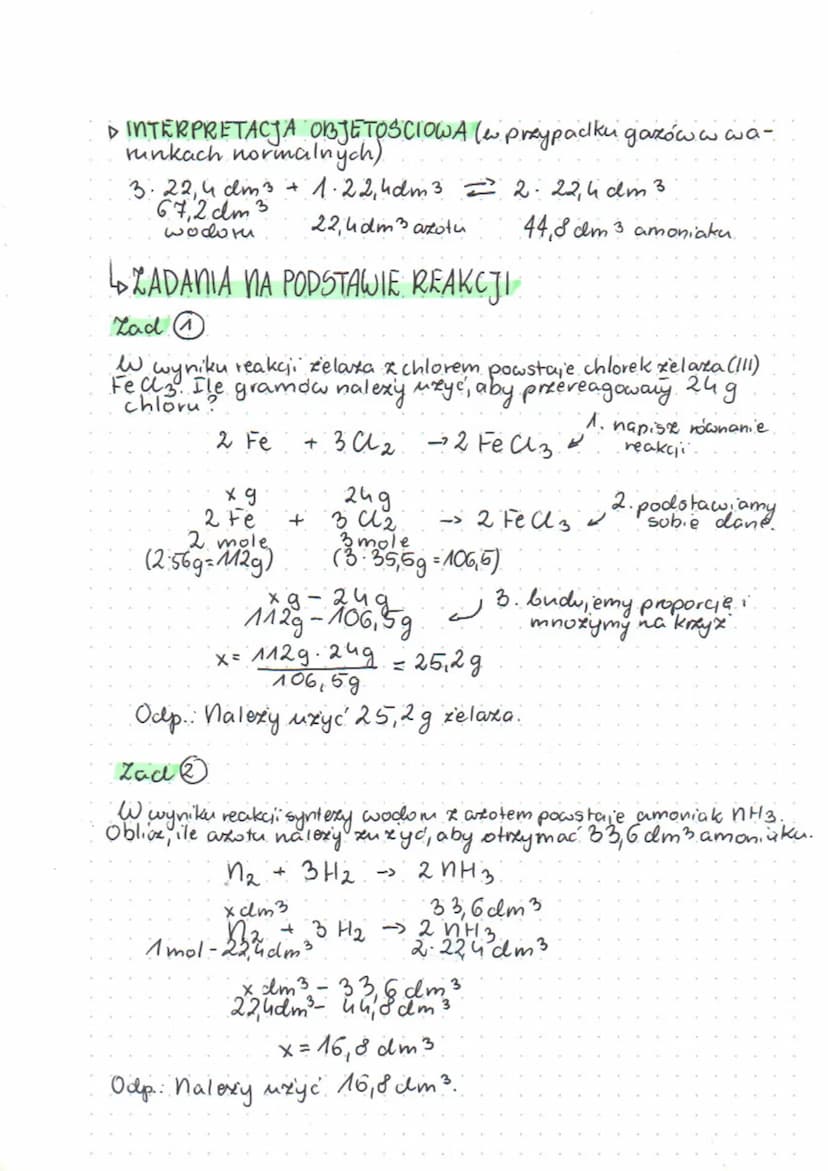 ▷ INTERPRETACJA OBJĘTOŚCIOWA (w przypadku gazów w wa-
runkach normalnych)
3 · 22,4 dm³ + 1 · 22,4 dm³ ⇄ 2 · 22,4 dm³
67,2 dm³
wodoru 22,4 dm³ azotu 44,8 dm³ amoniaku
↳ ZADANIA NA PODSTAWIE REAKCJI
Zad ①
W wyniku reakcji żelaza z chlorem powstaje chlorek żelaza (III)
FeCl₃. Ile gramów należy użyć, aby przereagowały 24 g
chloru?
2 Fe + 3 Cl₂ → 2 FeCl₃ ↙ 1. napisz równanie
reakcji
x g 24 g
2 Fe + 3 Cl₂ → 2 FeCl₃ ↙ 2. podstawiamy
sobie dane.
2 mole 3 mole
(2·56g=112g) (3·35,5g=106,5)
x g – 24 g
112g – 106,5g ↙ 3. budujemy proporcję i
mnożymy na krzyż
x = 112g · 24g / 106,5g = 25,2 g
Odp.: Należy użyć 25,2 g żelaza.
Zad ②
W wyniku reakcji syntezy wodoru z azotem powstaje amoniak NH₃.
Oblicz, ile azotu należy zużyć, aby otrzymać 33,6 dm³ amoniaku.
N₂ + 3H₂ → 2 NH₃
x dm³ 33,6 dm³
N₂ + 3 H₂ → 2 NH₃
1 mol - 22,4 dm³ 2 · 22,4 dm³
x dm³ – 33,6 dm³
22,4 dm³ – 44,8 dm³
x = 16,8 dm³
Odp.: Należy użyć 16,8 dm³.